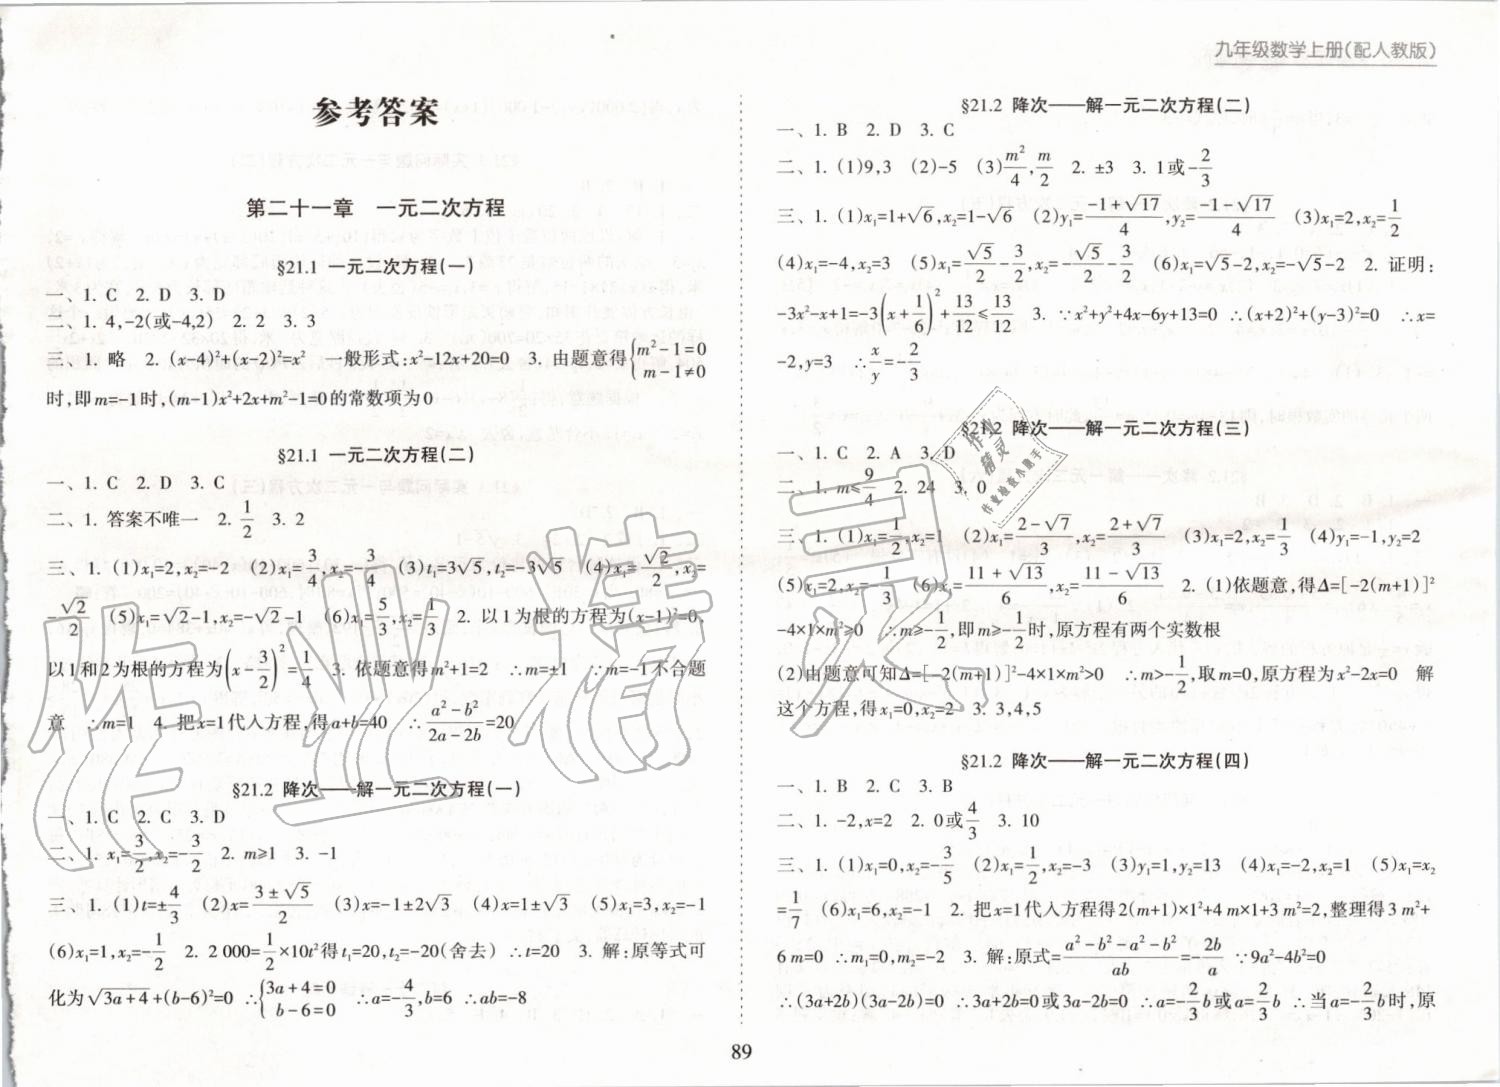 九年级数学上册(配人教版)
参考答案
第二十一章 一元二次方程
§21.1 一元二次方程(一)
一、1. C 2. D 3. D
二、1. 4,-2(或-4,2) 2. 2 3. 3
三、1. 略 2. (x-4)²+(x-2)²=x² 一般形式:x²-12x+20=0 3. 由题意得{m²-1=0 m-1≠0
时,即m=-1时,(m-1)x²+2x+m²-1=0的常数项为0
§21.1 一元二次方程(二)
一、1. C 2. D 3. C
二、1. 答案不唯一 2. 1/2 3. 2
三、1. (1)x₁=2,x₂=-2 (2)x₁=3/4,x₂=-3/4 (3)t₁=3√5,t₂=-3√5 (4)x₁=√2/2,x₂=
-√2/2 (5)x₁=√2-1,x₂=-√2-1 (6)x₁=5/3,x₂=1/3 2. 以1为根的方程为(x-1)²=0,
以1和2为根的方程为(x-3/2)²=1/4 3. 依题意得m²+1=2 ∴m=±1 ∵m=-1不合题
意 ∴m=1 4. 把x=1代入方程,得a+b=40 ∴(a²-b²)/(2a-2b)=20
§21.2 降次——解一元二次方程(一)
一、1. C 2. C 3. D
二、1. x₁=3/2,x₂=-3/2 2. m≥1 3. -1
三、1. (1)t=±4/3 (2)x=(3±√5)/2 (3)x=-1±2√3 (4)x=1±√3 (5)x₁=3,x₂=-1
(6)x₁=1,x₂=-1/2 2. 2 000=1/2×10t²得t₁=20,t₂=-20(舍去) ∴t=20 3. 解:原等式可
化为√(3a+4)+(b-6)²=0 ∴{3a+4=0 b-6=0 ∴a=-4/3,b=6 ∴ab=-8
§21.2 降次——解一元二次方程(二)
一、1. B 2. D 3. C
二、1. (1)9,3 (2)-5 (3)m²/4,m/2 2. ±3 3. 1或-2/3
三、1. (1)x₁=1+√6,x₂=1-√6 (2)y₁=(-1+√17)/4,y₂=(-1-√17)/4 (3)x₁=2,x₂=1/2
(4)x₁=-4,x₂=3 (5)x₁=√5/2-3/2,x₂=-√5/2-3/2 (6)x₁=√5-2,x₂=-√5-2 2. 证明:
-3x²-x+1=-3(x+1/6)²+13/12≤13/12 3. ∵x²+y²+4x-6y+13=0 ∴(x+2)²+(y-3)²=0 ∴x=
-2,y=3 ∴x/y=-2/3
§21.2 降次——解一元二次方程(三)
一、1. C 2. A 3. D
二、1. m≤9/4 2. 24 3. 0
三、1. (1)x₁=1/2,x₂=1 (2)x₁=(2-√7)/3,x₂=(2+√7)/3 (3)x₁=2,x₂=1/3 (4)y₁=-1,y₂=2
(5)x₁=2,x₂=-1/3 (6)x₁=(11+√13)/6,x₂=(11-√13)/6 2. (1)依题意,得Δ=[-2(m+1)]²
-4×1×m²≥0 ∴m≥-1/2,即m≥-1/2时,原方程有两个实数根
(2)由题意可知Δ=[-2(m+1)]²-4×1×m²>0 ∴m>-1/2,取m=0,原方程为x²-2x=0 解
这个方程,得x₁=0,x₂=2 3. 3,4,5
§21.2 降次——解一元二次方程(四)
一、1. B 2. C 3. B
二、1. -2,x=2 2. 0或4/3 3. 10
三、1. (1)x₁=0,x₂=-3/5 (2)x₁=1/2,x₂=-3 (3)y₁=1,y₂=13 (4)x₁=-2,x₂=1 (5)x₁=x₂
=1/7 (6)x₁=6,x₂=-1 2. 把x=1代入方程得2(m+1)×1²+4 m×1+3 m²=2,整理得3 m²+
6 m=0 ∴m₁=0,m₂=-2 3. 解:原式=(a²-b²-a²-b²)/ab=-2b/a ∵9a²-4b²=0
∴(3a+2b)(3a-2b)=0 ∴3a+2b=0或3a-2b=0 ∴a=-2/3b或a=2/3b ∴当a=-2/3b时,原
89
作业精灵
作业精灵
作业检查小助手